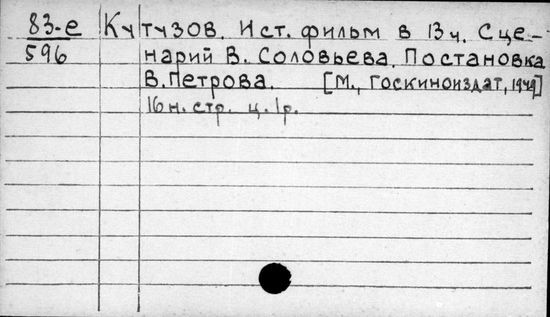 83-е Кутузов. Ист. фильм в 13 ч. Сце-
596 нарий В. Соловьева. Постановка
В. Петрова. [М., Госкиноиздат, 1949]
16 н. стр. ц. 1р.